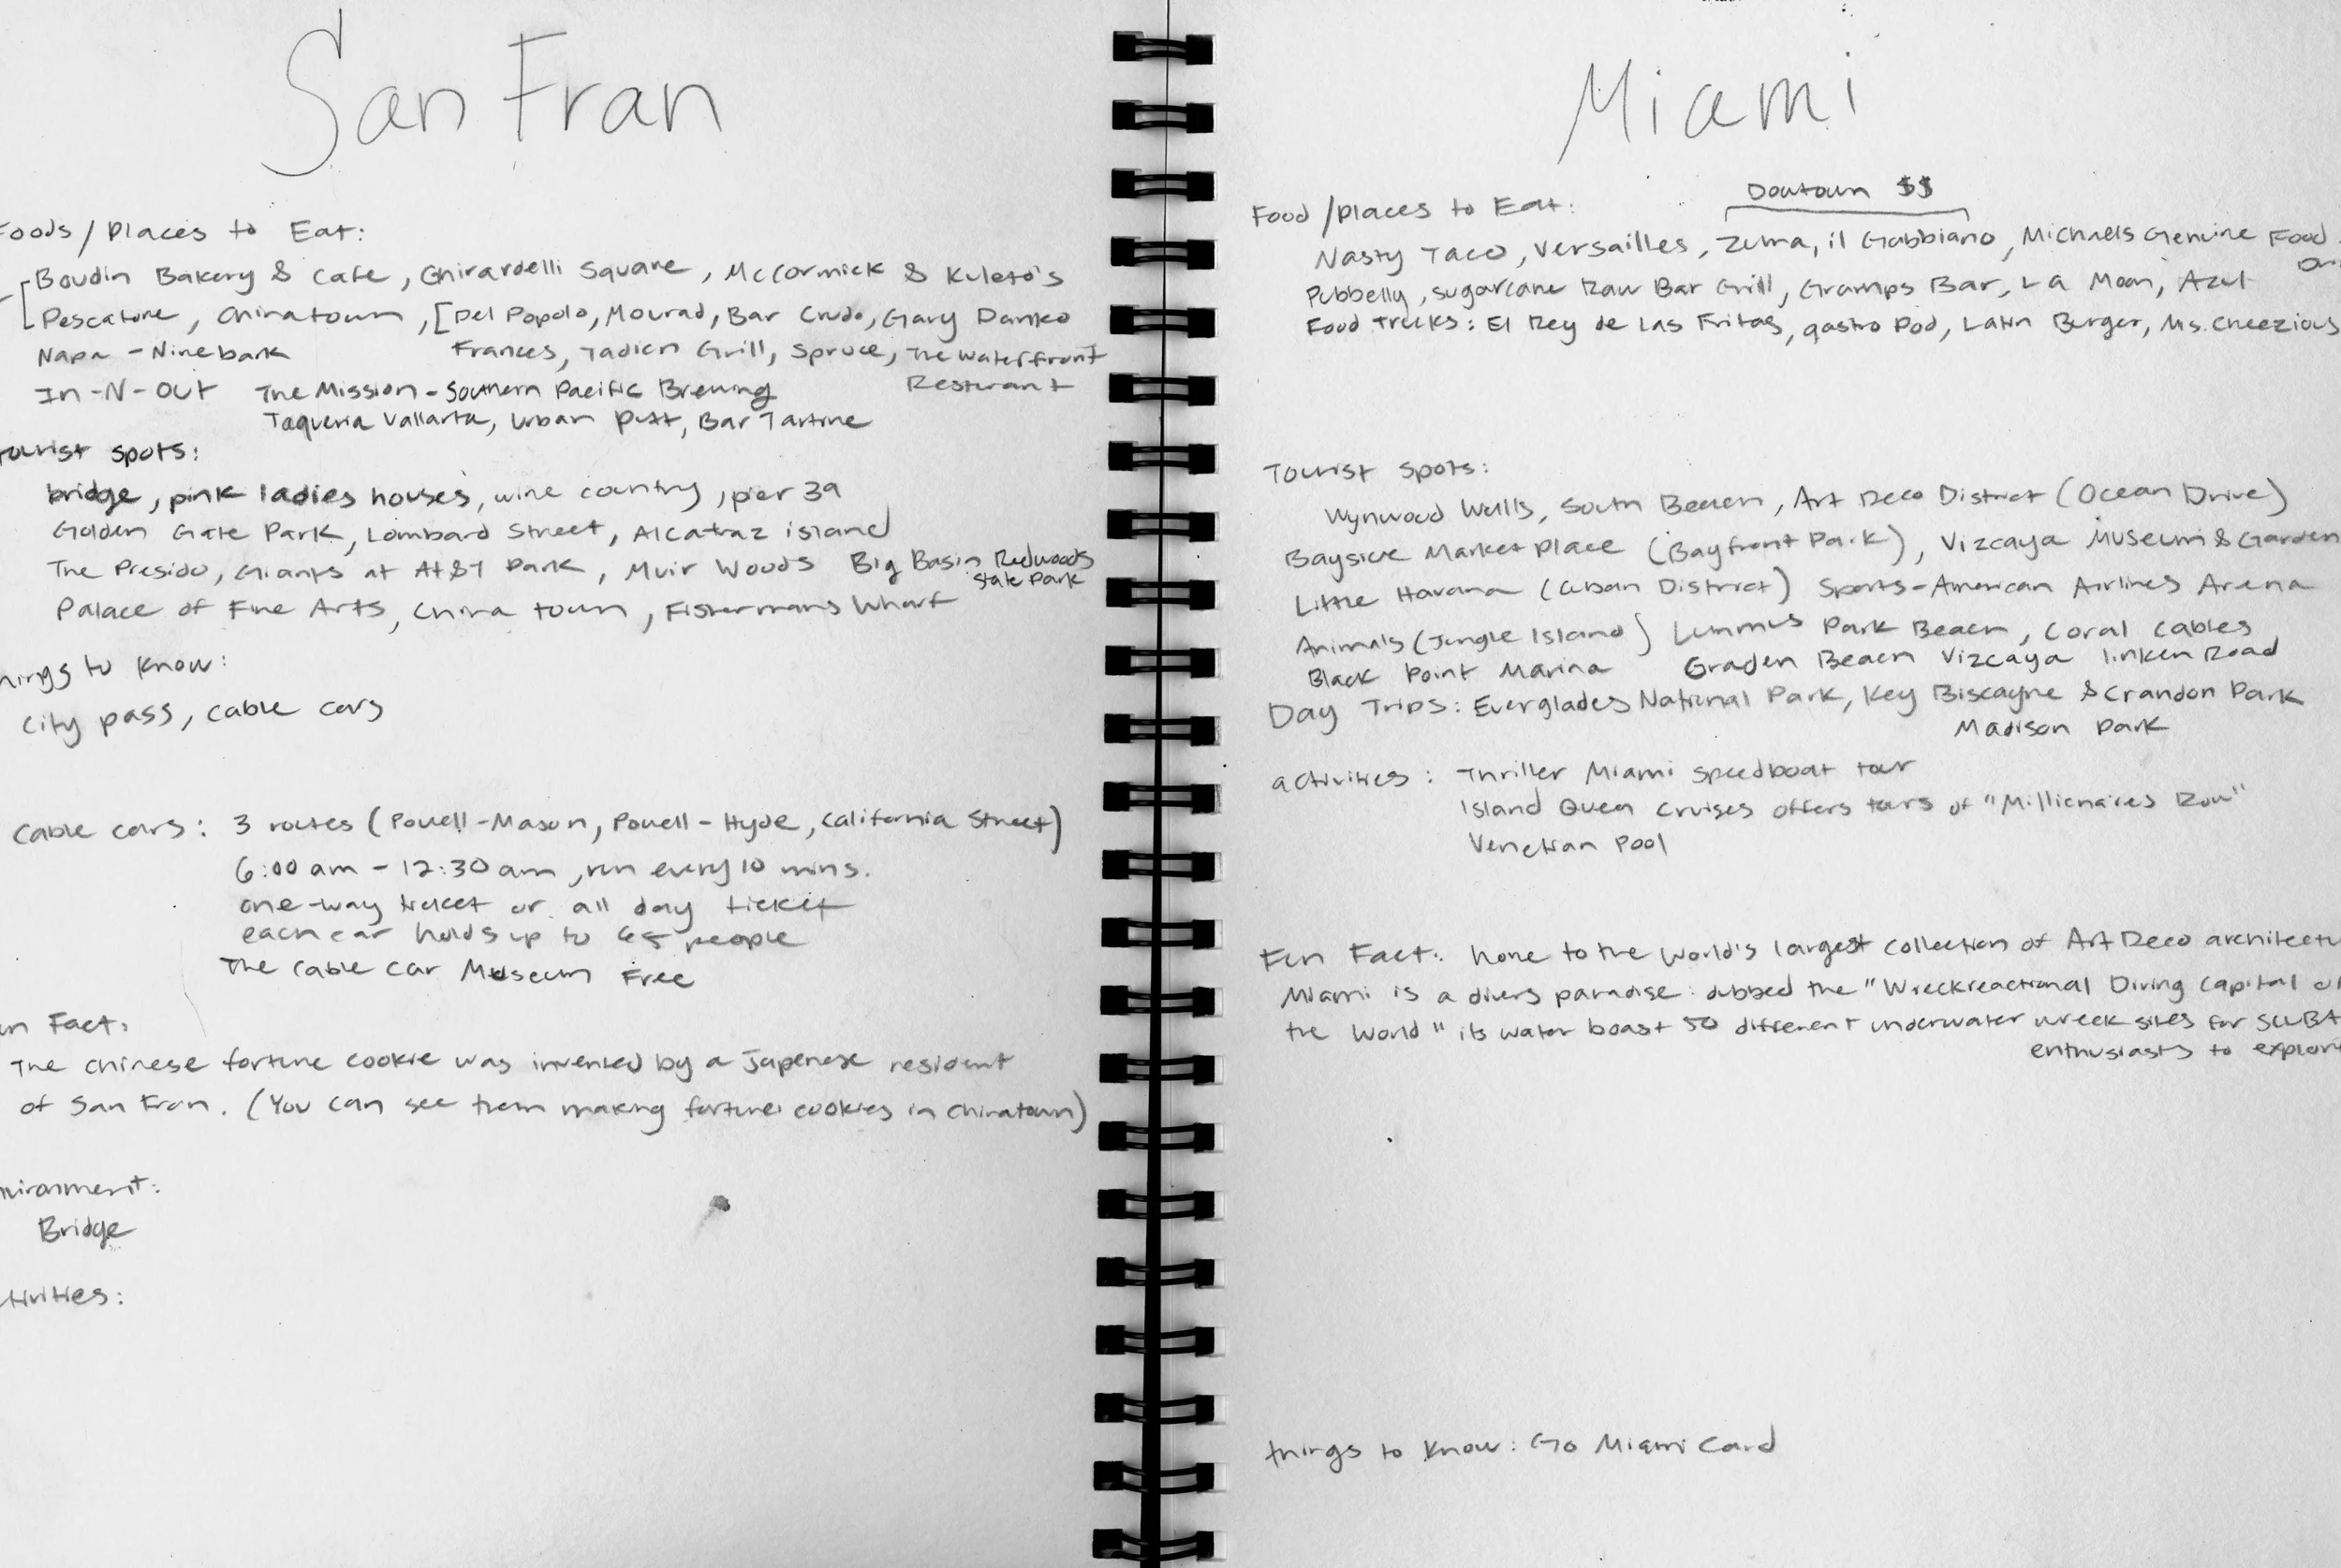 San Fran
Foods/Places to Eat:
Boudin Bakery & Cafe, Ghirardelli Square, McCormick & Kuleto's
Pescatore, Chinatown, [Del Popolo, Mourad, Bar Crudo, Gary Danko
Napa - Ninebark
Frances, Tadich Grill, Spruce, The Waterfront
Resturant
In-N-Out The Mission - Southern Pacific Brewing
Taqueria Vallarta, Urban Putt, Bar Tartine
Tourist spots:
bridge, pink ladies houses, wine country, pier 39
Golden Gate Park, Lombard Street, Alcatraz island
The Presido, Giants at AT&T Park, Muir Woods Big Basin Redwoods
State Park
Palace of Fine Arts, China town, Fishermans Wharf
things to know:
city pass, cable cars
Cable cars: 3 routes (Powell-Mason, Powell-Hyde, California Street)
6:00 am - 12:30 am, run every 10 mins.
one-way ticket or all day ticket
each car holds up to 65 people
The Cable Car Museum Free
Fun Fact:
The chinese fortune cookie was invented by a Japenese resident
of San Fran. (You can see them making fortune cookies in chinatown)
Environment:
Bridge
Activities:
Miami
Dowtown $$
Food/places to Eat:
Nasty Taco, Versailles, Zuma, il Gabbiano, Michaels Genuine Food
Pubbelly, sugarcane Raw Bar Grill, Gramps Bar, La Moon, Azul
Food Trucks: El Rey de Las Fritas, gastro Pod, Latin Burger, Ms. Cheezious
Tourist Spots:
Wynwood Walls, South Beach, Art Deco District (Ocean Drive)
Bayside Marketplace (Bayfront Park), Vizcaya Museum & Garden
Little Havana (Cuban District) Sports-American Airlines Arena
Animals (Jungle Island) Lummus Park Beach, Coral Gables
Black Point Marina Graden Beach Vizcaya linken Road
Day Trips: Everglades National Park, Key Biscayne & Crandon Park
Madison Park
activities: Thriller Miami speedboat tour
Island Queen Cruises offers tours of "Millionaires Row"
Venetian Pool
Fun Fact: home to the world's largest collection of Art Deco architectu
Miami is a divers paradise: dubbed the "Wreckreactional Diving Capital of
the World" its water boast 50 different underwater wreck sites for SCUBA
enthusiasts to explore
things to know: Go Miami Card